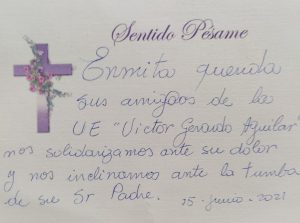 Sentido Pésame
Enmita querida
sus amig@os de la
UE "Victor Gerardo Aguilar"
nos solidarizamos ante su dolor
y nos inclinamos ante la tumba
de su Sr Padre. 15-junio-2021